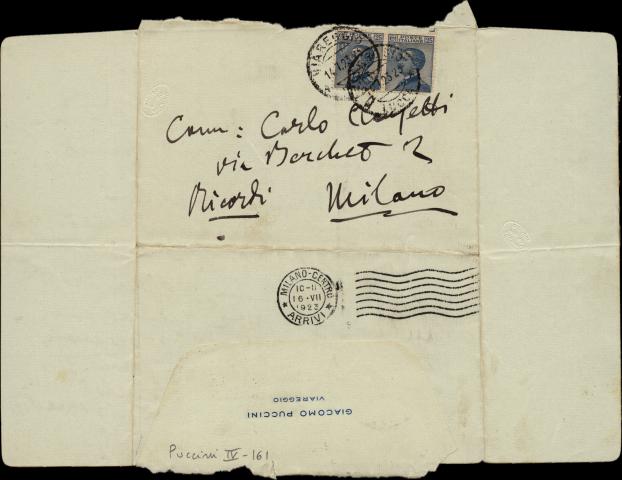 VIAREGGIO
LUCCA
POSTE ITALIANE
Comm: Carlo Clausetti
via Berchet 2
Ricordi Milano
MILANO-CENTRO
10-11
16·VII
1923
ARRIVI
GIACOMO PUCCINI
VIAREGGIO
Puccini IV-161